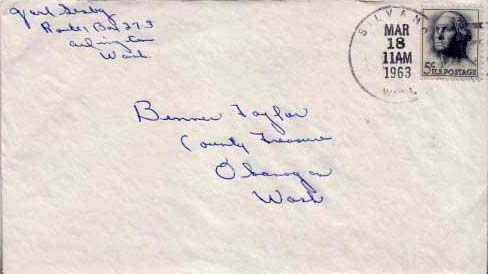 Route 1 Box 273
Arlington
Wash.
SILVANA
MAR
18
11AM
1963
WASH.
5c U.S. POSTAGE
Benner Taylor
County Treasure
Okanogan
Wash